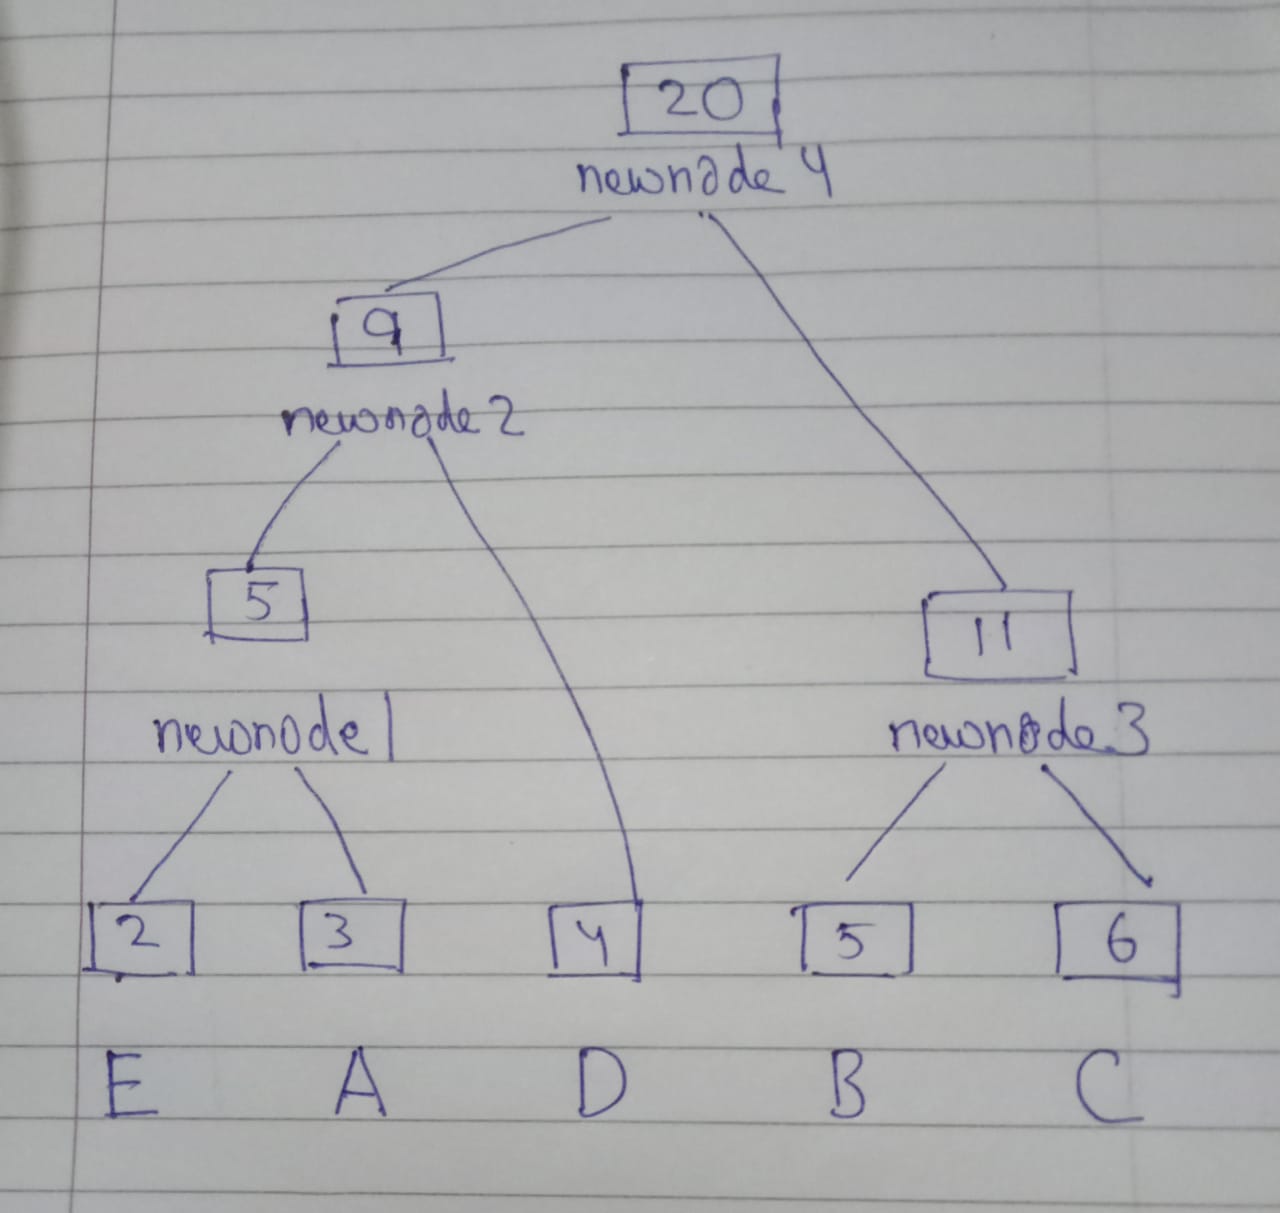 20
newnode 4
9
newnode 2
5
11
newnode 1
newnode 3
2 3 4 5 6
E A D B C